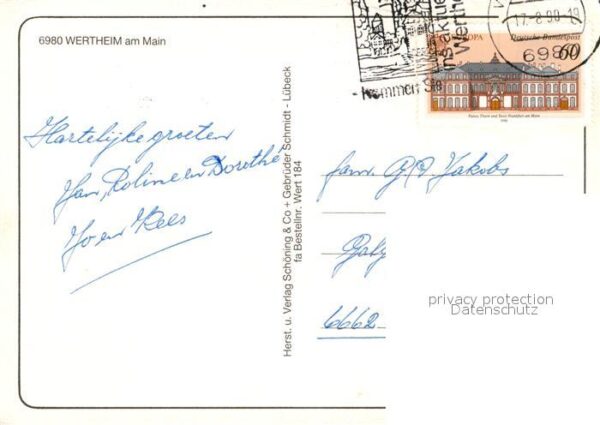 6980 WERTHEIM am Main
Hartelijke groeten
Jan, Roline en Dorothé
Jo en Kees
Herst. u. Verlag Schöning & Co + Gebrüder Schmidt - Lübeck
fa Bestellnr. Wert 184
17-8.90-19
6980
Wertheim
- Kommen Sie
Deutsche Bundespost
60
Palais Thurn und Taxis Frankfurt am Main
fam. Jakobs
6662
privacy protection
Datenschutz